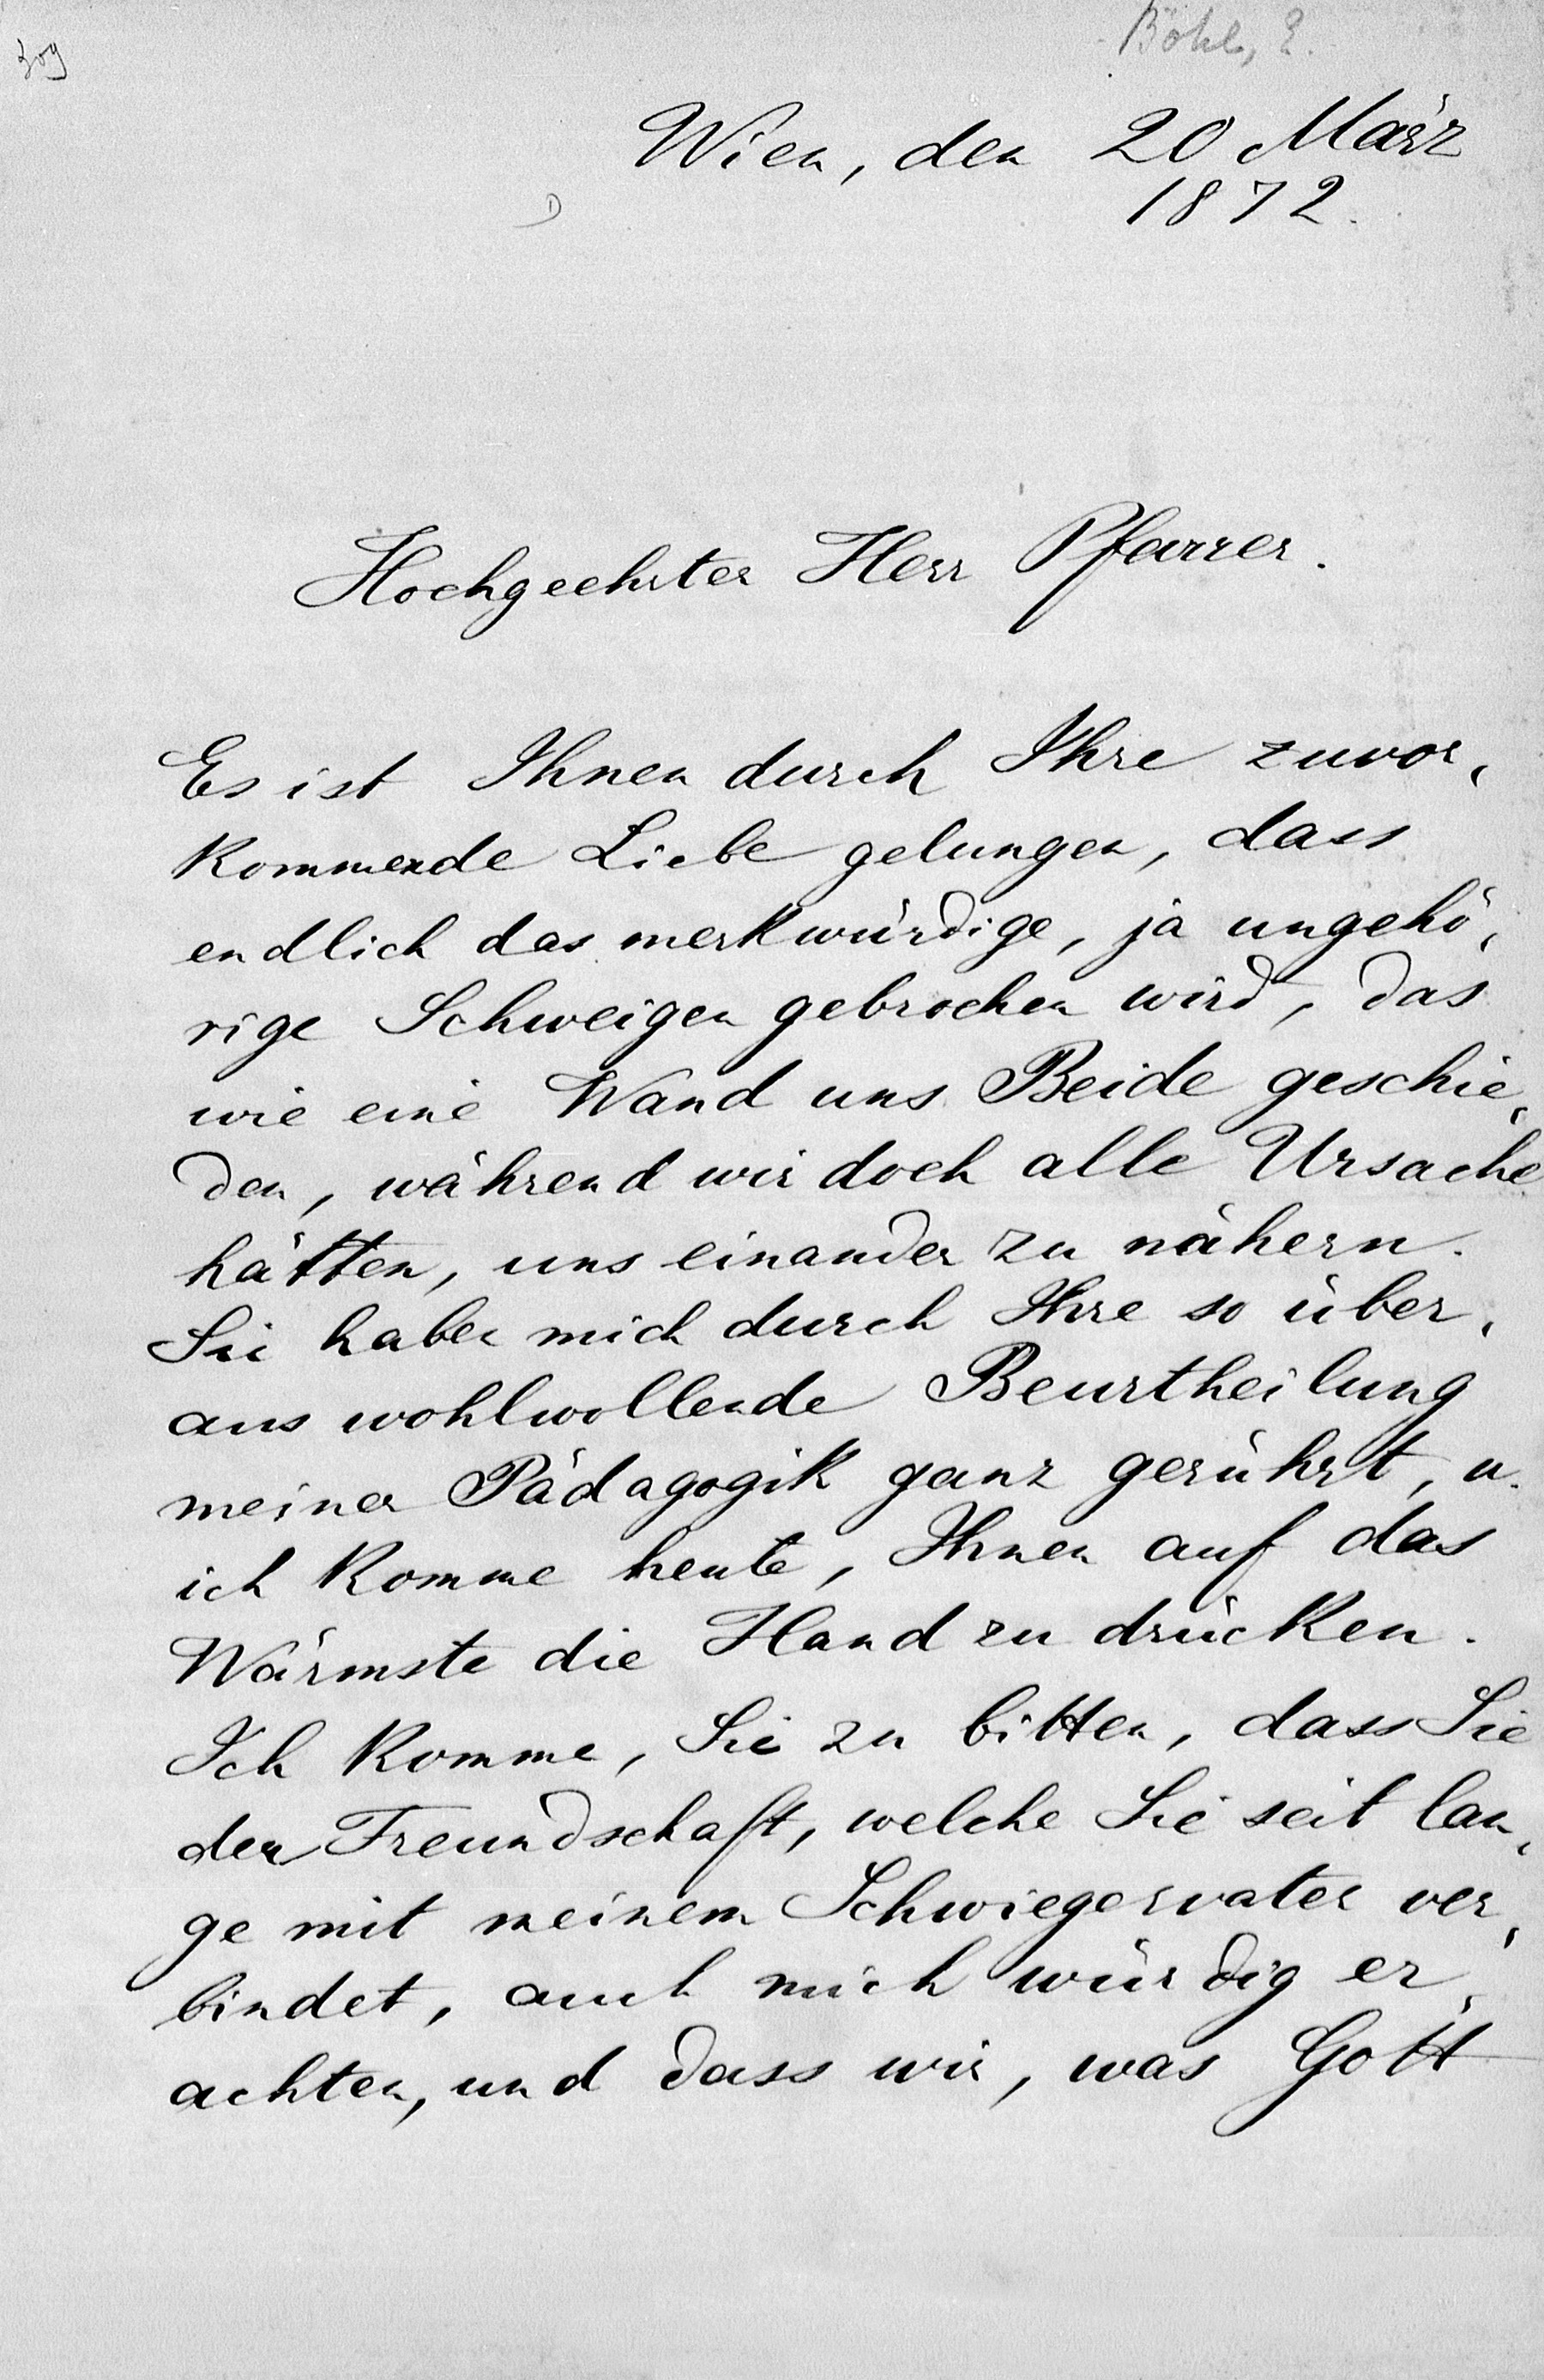 309
Böhl, E.
Wien, den 20 März
1872.
Hochgeehrter Herr Pfarrer.
Es ist Ihnen durch Ihre zuvor,
kommende Liebe gelungen, dass
endlich das merkwürdige, ja ungehö,
rige Schweigen gebrochen wird, das
wie eine Wand uns Beide geschie,
den, während wir doch alle Ursache
hätten, uns einander zu nähern.
Sie haben mich durch Ihre so über,
aus wohlwollende Beurtheilung
meiner Pädagogik ganz gerührt, u.
ich komme heute, Ihnen auf das
Wärmste die Hand zu drücken.
Ich komme, Sie zu bitten, dass Sie
der Freundschaft, welche Sie seit lan,
ge mit meinem Schwiegervater ver,
bindet, auch mich würdig er,
achten, und dass wir, was Gott